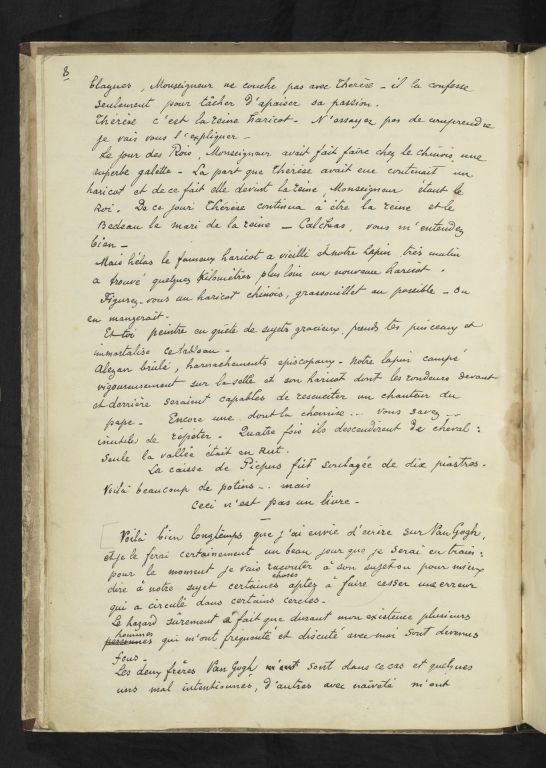 8
blagues, Monseigneur ne couche pas avec Thérèse - il la confesse
seulement pour tâcher d'apaiser sa passion.
Thérèse c'est la reine haricot - N'essayez pas de comprendre
je vais vous l'expliquer -
Le jour des Rois, Monseigneur avait fait faire chez le chinois une
superbe galette - La part que Thérèse avait eue contenait un
haricot et de ce fait elle devint la reine, Monseigneur étant le
Roi. De ce jour Thérèse continua à être la reine et le
Bedeau le mari de la reine - Calchas, vous m'entendez
bien -
Mais hélas le fameux haricot a vieilli et notre lapin très malin
a trouvé quelques kilomètres plus loin un nouveau haricot.
Figurez-vous un haricot chinois, grassouillet au possible - on
en mangerait.
Et toi peintre en quête de sujets gracieux, prends tes pinceaux et
immortalise ce tableau -
Alezan brûlé, harnachements episcopaux - Notre lapin campé
vigoureusement sur la selle et son haricot dont les rondeurs devant
et derrière seraient capables de rescuciter un chanteur du
pape - Encore une dont la chemise... vous savez...
inutile de répéter - Quatre fois ils descendirent de cheval:
seule la vallée était en rut.
La caisse de Picpus fut soulagée de dix piastres.
Voilà beaucoup de potins... mais
Ceci n'est pas un livre -
Voilà bien longtemps que j'ai envie d'écrire sur Van Gogh,
et je le ferai certainement un beau jour que je serai en train:
pour le moment je vais raconter à son sujet ou pour mieux
dire à notre sujet certaines choses aptes à faire cesser une erreur
qui a circulé dans certains cercles.
Le hazard sûrement a fait que durant mon existence plusieurs
personnes hommes qui m'ont fréquenté et discuté avec moi sont devenus
fous -
Les deux frères Van Gogh m'ont sont dans ce cas et quelques
uns mal intentionnés, d'autres avec naïveté m'ont